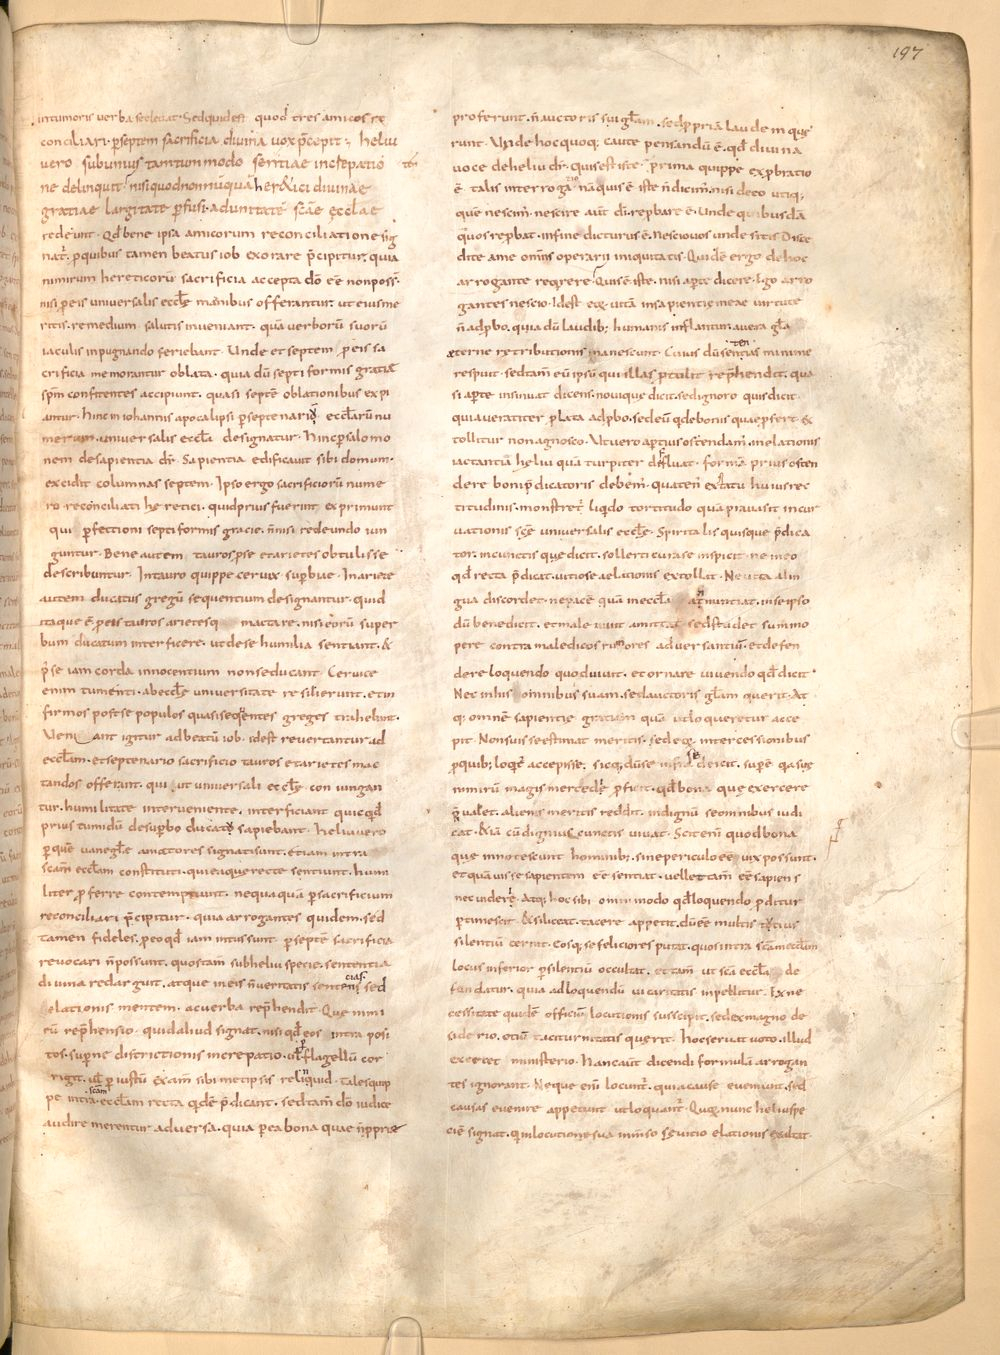 197
in tumoris verba se elevat. Sed quid est quod tres amicos re
conciliari. p septem sacrificia divina vox p̄cepit; heliu
vero subunius tantummodo sententiae increpatio
ne delinquit nisi quod nonnūquā heretici divinae
gratiae largitate p̄fusi. adunitatē scāe eccłae
redeunt. Qđ bene ipsa amicorum reconciliatione sig
nat̄. p quibus tamen beatus iob exorare p̄cipitur; quia
nimirum hereticorū sacrificia accepta dō eē non poss̄.
nisi p eis universalis eccłę manibus offerantur. ut eius me
ritis. remedium salutis inveniant. quā verborū suorū
iaculis inpugnando feriebant. Unde et septem p eis sa
crificia memorantur oblata. quia dū septiformis gratiae
spm̄ confitentes accipiunt. quasi septē oblationibus expi
antur. hinc in iohannis apocalipsi p septenariū ecclarū nu
merum. universalis eccła designatur. hinc p salomo
nem de sapientia dr̄. Sapientia edificavit sibi domum.
excidit columnas septem. Ipso ergo sacrificiorū nume
ro reconciliati heretici. quid prius fuerint exprimunt
qui p̄fectioni septiformis gracie. n̄ nisi redeundo iun
guntur. Bene autem tauros p se et arietes obtulisse
describuntur. In tauro quippe cervix superbiae. In ariete
autem ducatus gregū sequentium designantur. quid
itaque ē p eis tauros arietesq mactare. nisi eorū super
bum ducatum interficere. ut de se humilia sentiant. &
p̄ se iam corda innocentium non seducant. Cervice
enim tumenti. ab eccłę universitate resilierunt. et in
firmos post se populos quasi sequentes greges trahebant.
Veniant igitur ad beatū iob. id est revertantur ad
eccłam. et septenario sacrificio tauros et arietes mac
tandos offerant. qui ut universali eccłę coniungan
tur. humilitate interveniente. interficiant quicqđ
prius tumidū de superbo ducatu sapiebant. heliu vero
p quē vanę głae amatores signati sunt. etiam intra
scām eccłam constituti. qui ea que recte sentiunt. humi
liter p̄ferre contempnunt. nequaquā p sacrificium
reconciliari p̄cipitur. quia arrogantes quidem. sed
tamen fideles. p eo qđ iam intus sunt p septē sacrificia
revocari n̄ possunt. quos tam̄ sub heliu specie. sententia
divina redarguit. atque in eis n̄ veritatis sententias sed
elationis mentem. acerba rep̄hendit. Que nimi
rū rep̄hensio quid aliud signat. nisi qđ eos intra posi
tos. supne districtionis increpatio. uł flagellū cor
rigit. uł p iustū exam̄ sibimetipsis relinquid. Tales quip
pe intra scam eccłam recta qdē p̄dicant. sed tam̄ dō iudice
audire merentur adversa. quia p ea bona quae n̄ pprie
proferunt. n̄ auctoris sui głam. sed ppriā laudem inque
runt. Unde hoc quoq; caute pensandū ē. qđ divina
voce de heliu dr̄. Quis est iste. p̄rima quippe exprobratio
ē talis interrogatio nā quis ē iste n̄ dicim̄. nisi de eo utiq;
quē nescim̄. nescire aut̄ dī. repbare ē. Unde quibusdā
quos repbat. in fine dicturus ē. Nescio vos unde sitis Disce
dite a me oīns operarii iniquitatis. Quid ē ergo de hoc
arrogante reqrere. Quis ē iste. nisi apte dicere. Ego arro
gantes nescio. Id est eoꝝ vitā in sapientię meae virtute
n̄ adpbo. quia dū laudib; humanis inflantur. a vera głae
ęterne retributionis inanescunt. Cuius dū sententias minime
respuit. sed tam̄ eū ipsū qui illas ptulit rep̄hendit. qua
si apte insinuat dicens. novi que dicit. sed ignoro quis dicit.
quia veraciter plata adpbo. sed eū q de bonis que p̄fert. ex
tollitur non agnosco. Ut vero aptius ostendam̄. in elationis
iactantia heliu quā turpiter defluat. formā prius osten
dere boni p̄dicatoris debem̄. quatenꝰ ex statu huius rec
titudinis. monstret̄ liqdo tortitudo quā p̄avasit incur
vationis scę universalis eccłę. Spiritalis quisque p̄dica
tor. in cunctis que dicit. sollerti cura se inspicit. ne in eo
qđ recta p̄dicat. vitio se aelationis extollit. Ne vita a lin
gua discordet. ne pacē quā in eccła adnuntiat. in se ipso
dū bene dicit. et male vivit amittat sed studet summo
pere contra maledicos rumores adversantiū. et defen
dere loquendo quod vivit. et ornare vivendo qđ dicit.
Nec in his omnibus suam. sed auctoris głam querit. At
q; omnē sapientie gratiam quā ut loqueretur acce
pit. Non suis se estimat meritis. sed eoꝝ intercessionibus
p quib; loqt̄ accepisse. sicq; dū se infra se deicit. supē qs se
nimirū magis mercede p̄ficit. qđ bona que exercere
p̄valet. alienis meritis reddit. indignū se omnibus iudi
cat. & iā cū dignius cunctis vivat. Scit em̄ quod bona
que innotescunt hominib; sine periculo eē vix possunt.
et quāvis se sapientem eē sentiat. vellet tam̄ eē sapiens
nec videri. Atq; hoc sibi omnimodo qđ loquendo p̄ditur
ptimescit. & si liceat. tacere appetit. dū eē multis tutius
silentiū cernit. Eosq; se feliciores putat. quos intra scām eccłam
locus inferior p silentiū occultat. et tam̄ ut scā eccła de
fendatur. quia ad loquendū vi caritatis inpellitur. Ex ne
cessitate quidē officiū locutionis suscipit. sed ex magno de
siderio. otiū taciturnitatis querit. hoc servat voto. illud
exercet ministerio. Hanc aut̄ dicendi formulā arrogan
tes ignorant. Neque em̄ locunt̄. quia cause eveniunt. sed
causas evenire appetunt ut loquant̄. Quoꝝ nunc heliu spe
ciē signat. q̄ in locutione sua inmenso se vitio elationis exaltat.